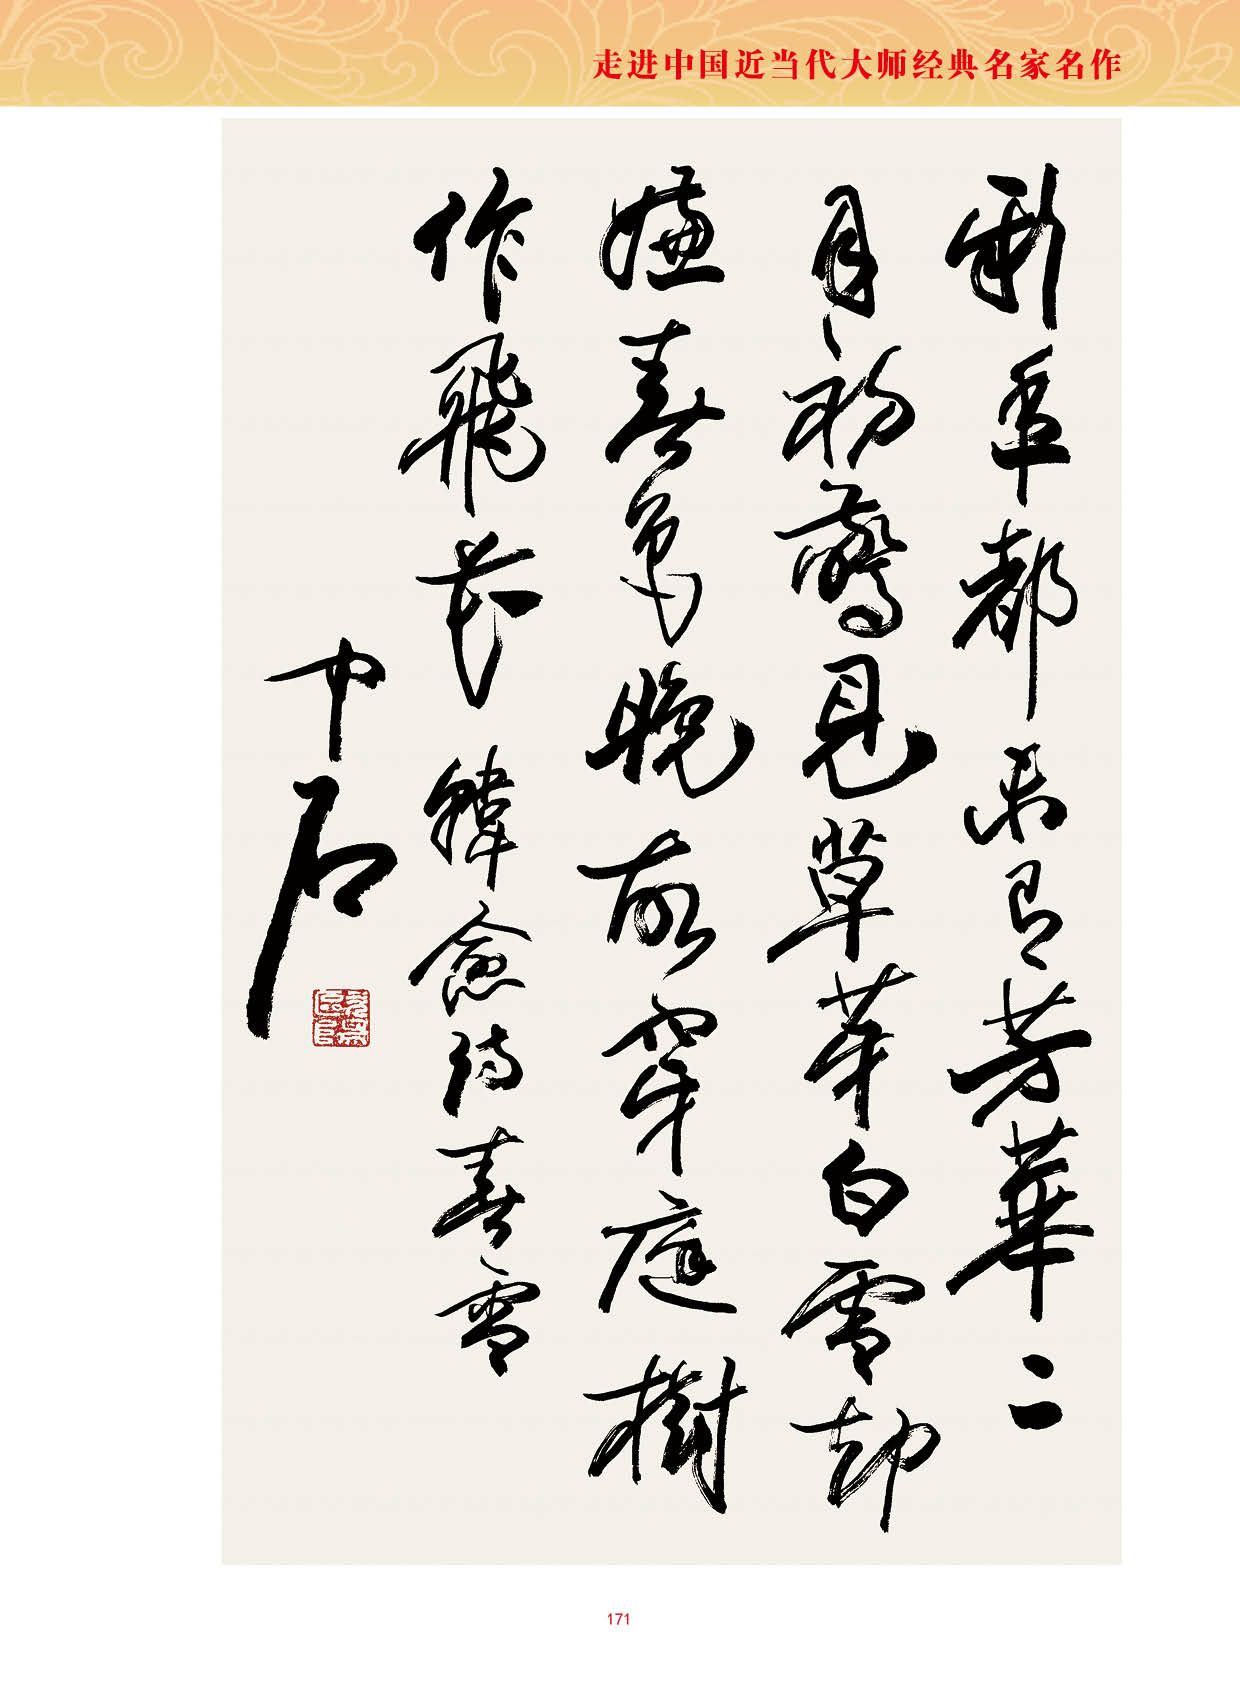 走进中国近当代大师经典名家名作
新年都未有芳華二
月初驚見草芽白雪却
嫌春色晚故穿庭樹
作飛花 韓愈詩春雪
中石
171